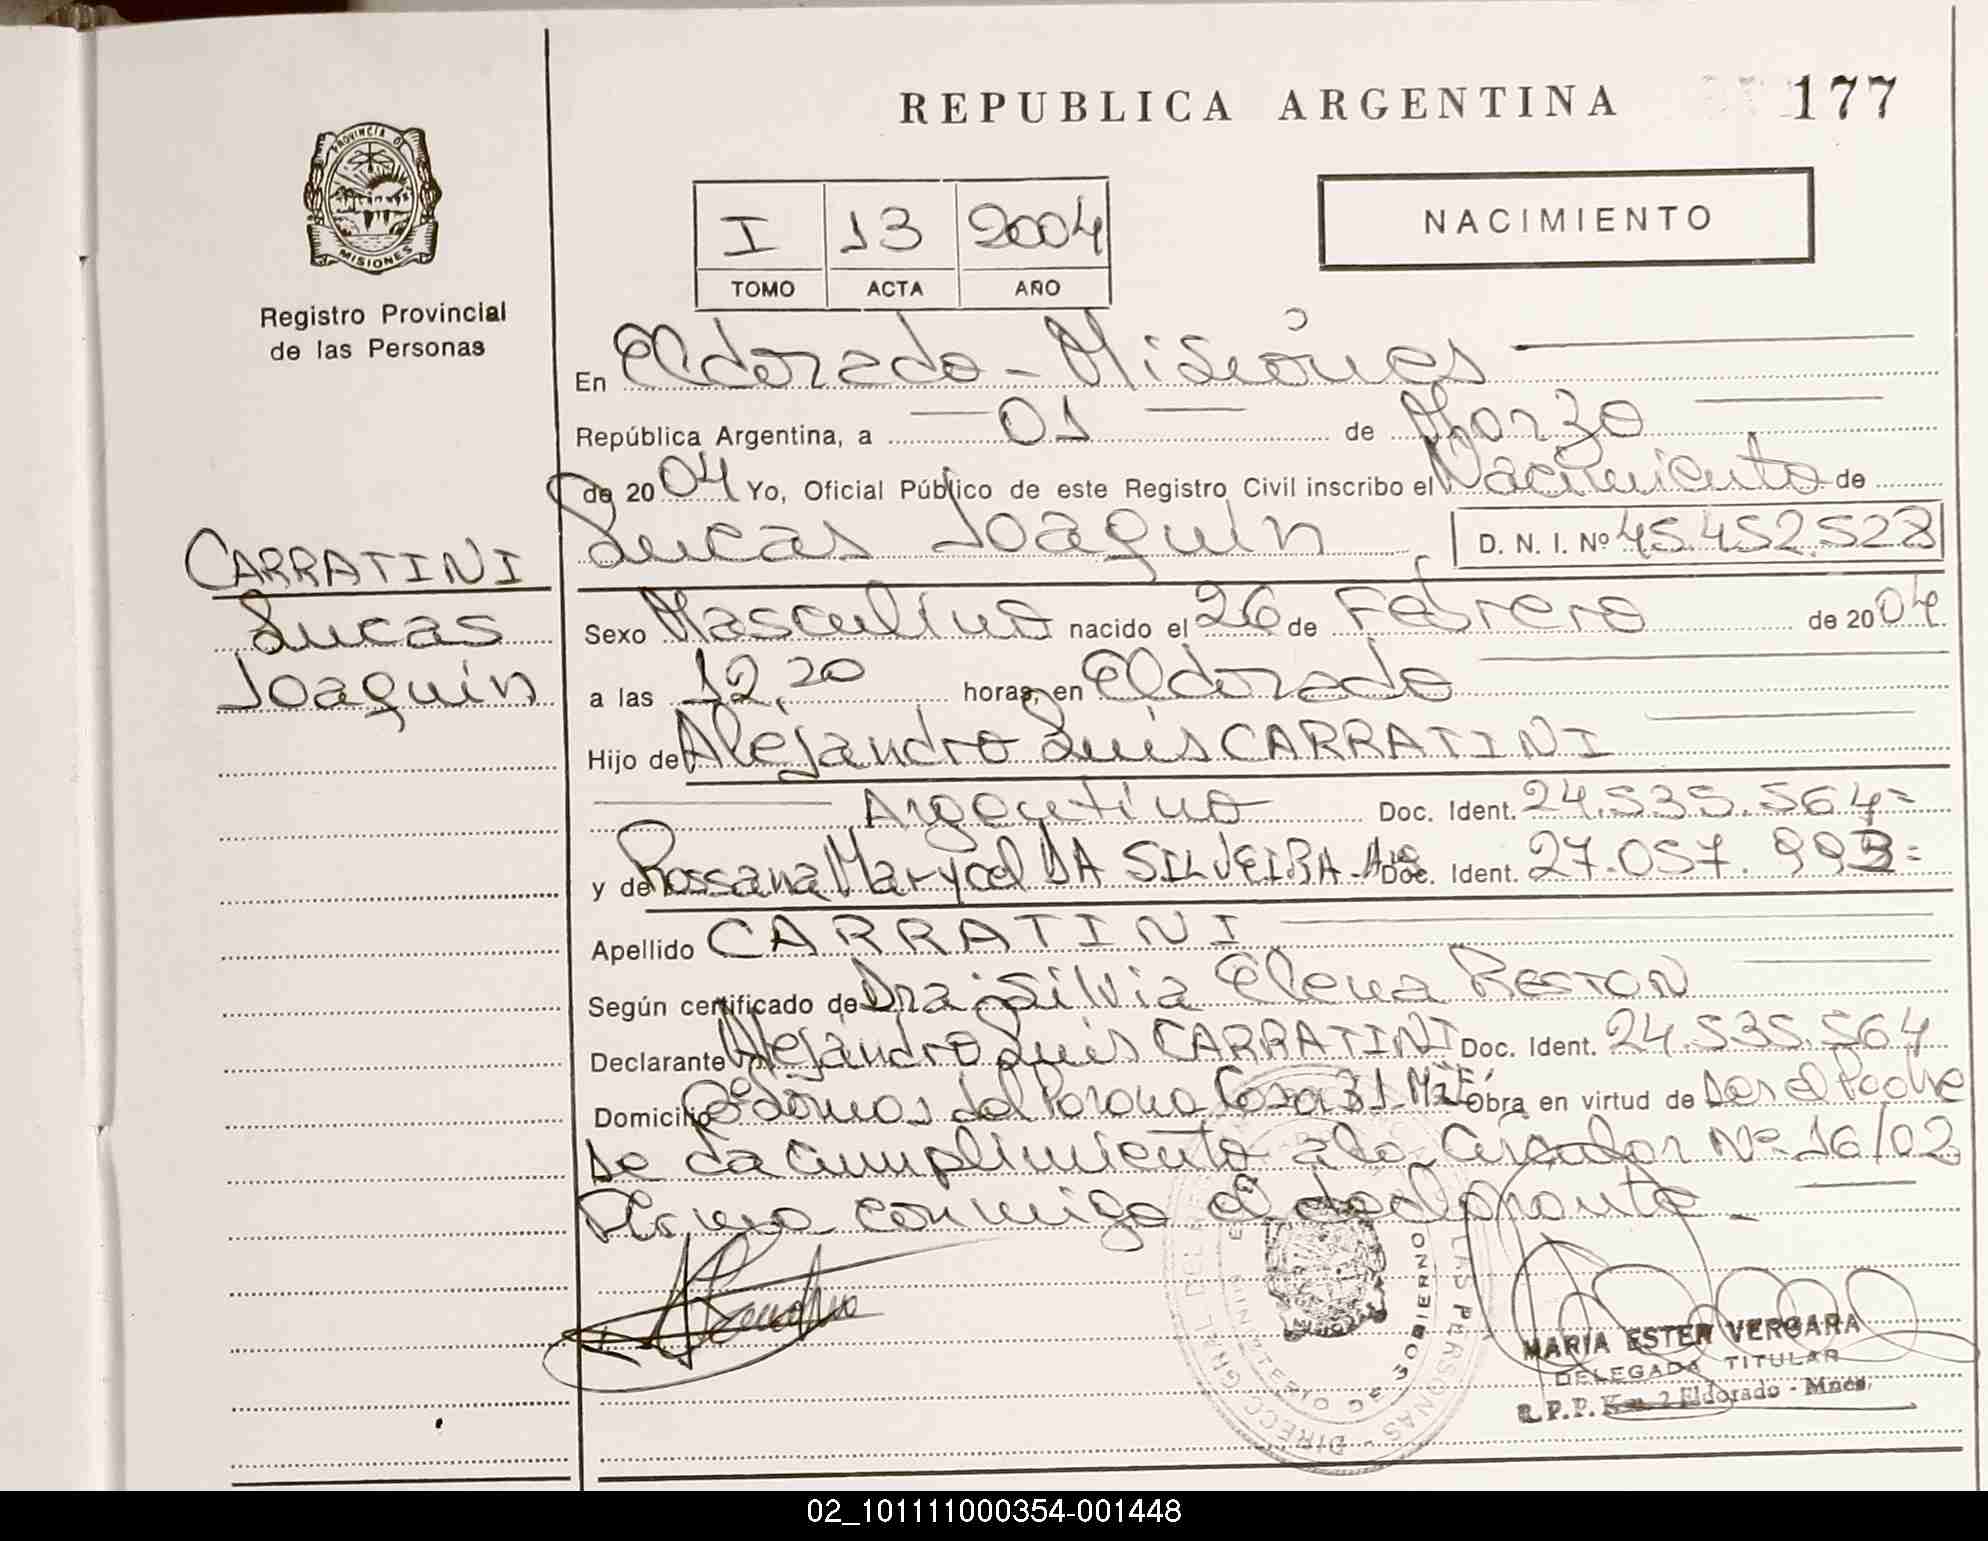 REPUBLICA ARGENTINA
177
PROVINCIA DE MISIONES
Registro Provincial
de las Personas
I 13 2004
TOMO ACTA AÑO
NACIMIENTO
En Eldorado - Misiones
República Argentina, a 01 de Marzo
de 2004 Yo, Oficial Público de este Registro Civil inscribo el Nacimiento de
Lucas Joaquín D. N. I. Nº 45.452.528
CARRATINI
Lucas
Joaquín
Sexo Masculino nacido el 26 de Febrero de 2004
a las 12,20 horas, en Eldorado
Hijo de Alejandro Luis CARRATINI
Argentino Doc. Ident. 24.535.564=
y de Rossana Marycel DA SILVEIRA Doc. Ident. 27.057.993=
Apellido CARRATINI
Según certificado de Dra. Silvia Elena RESTON
Declarante Alejandro Luis CARRATINI Doc. Ident. 24.535.564
Domicilio del Parana Casa 31 Obra en virtud de ser el Padre
Se da cumplimiento a la Circular Nº 16/02
Firma conmigo el declarante.
MARIA ESTER VERGARA
DELEGADA TITULAR
R.P.P. Km. 2 Eldorado - Mnes.
02_101111000354-001448